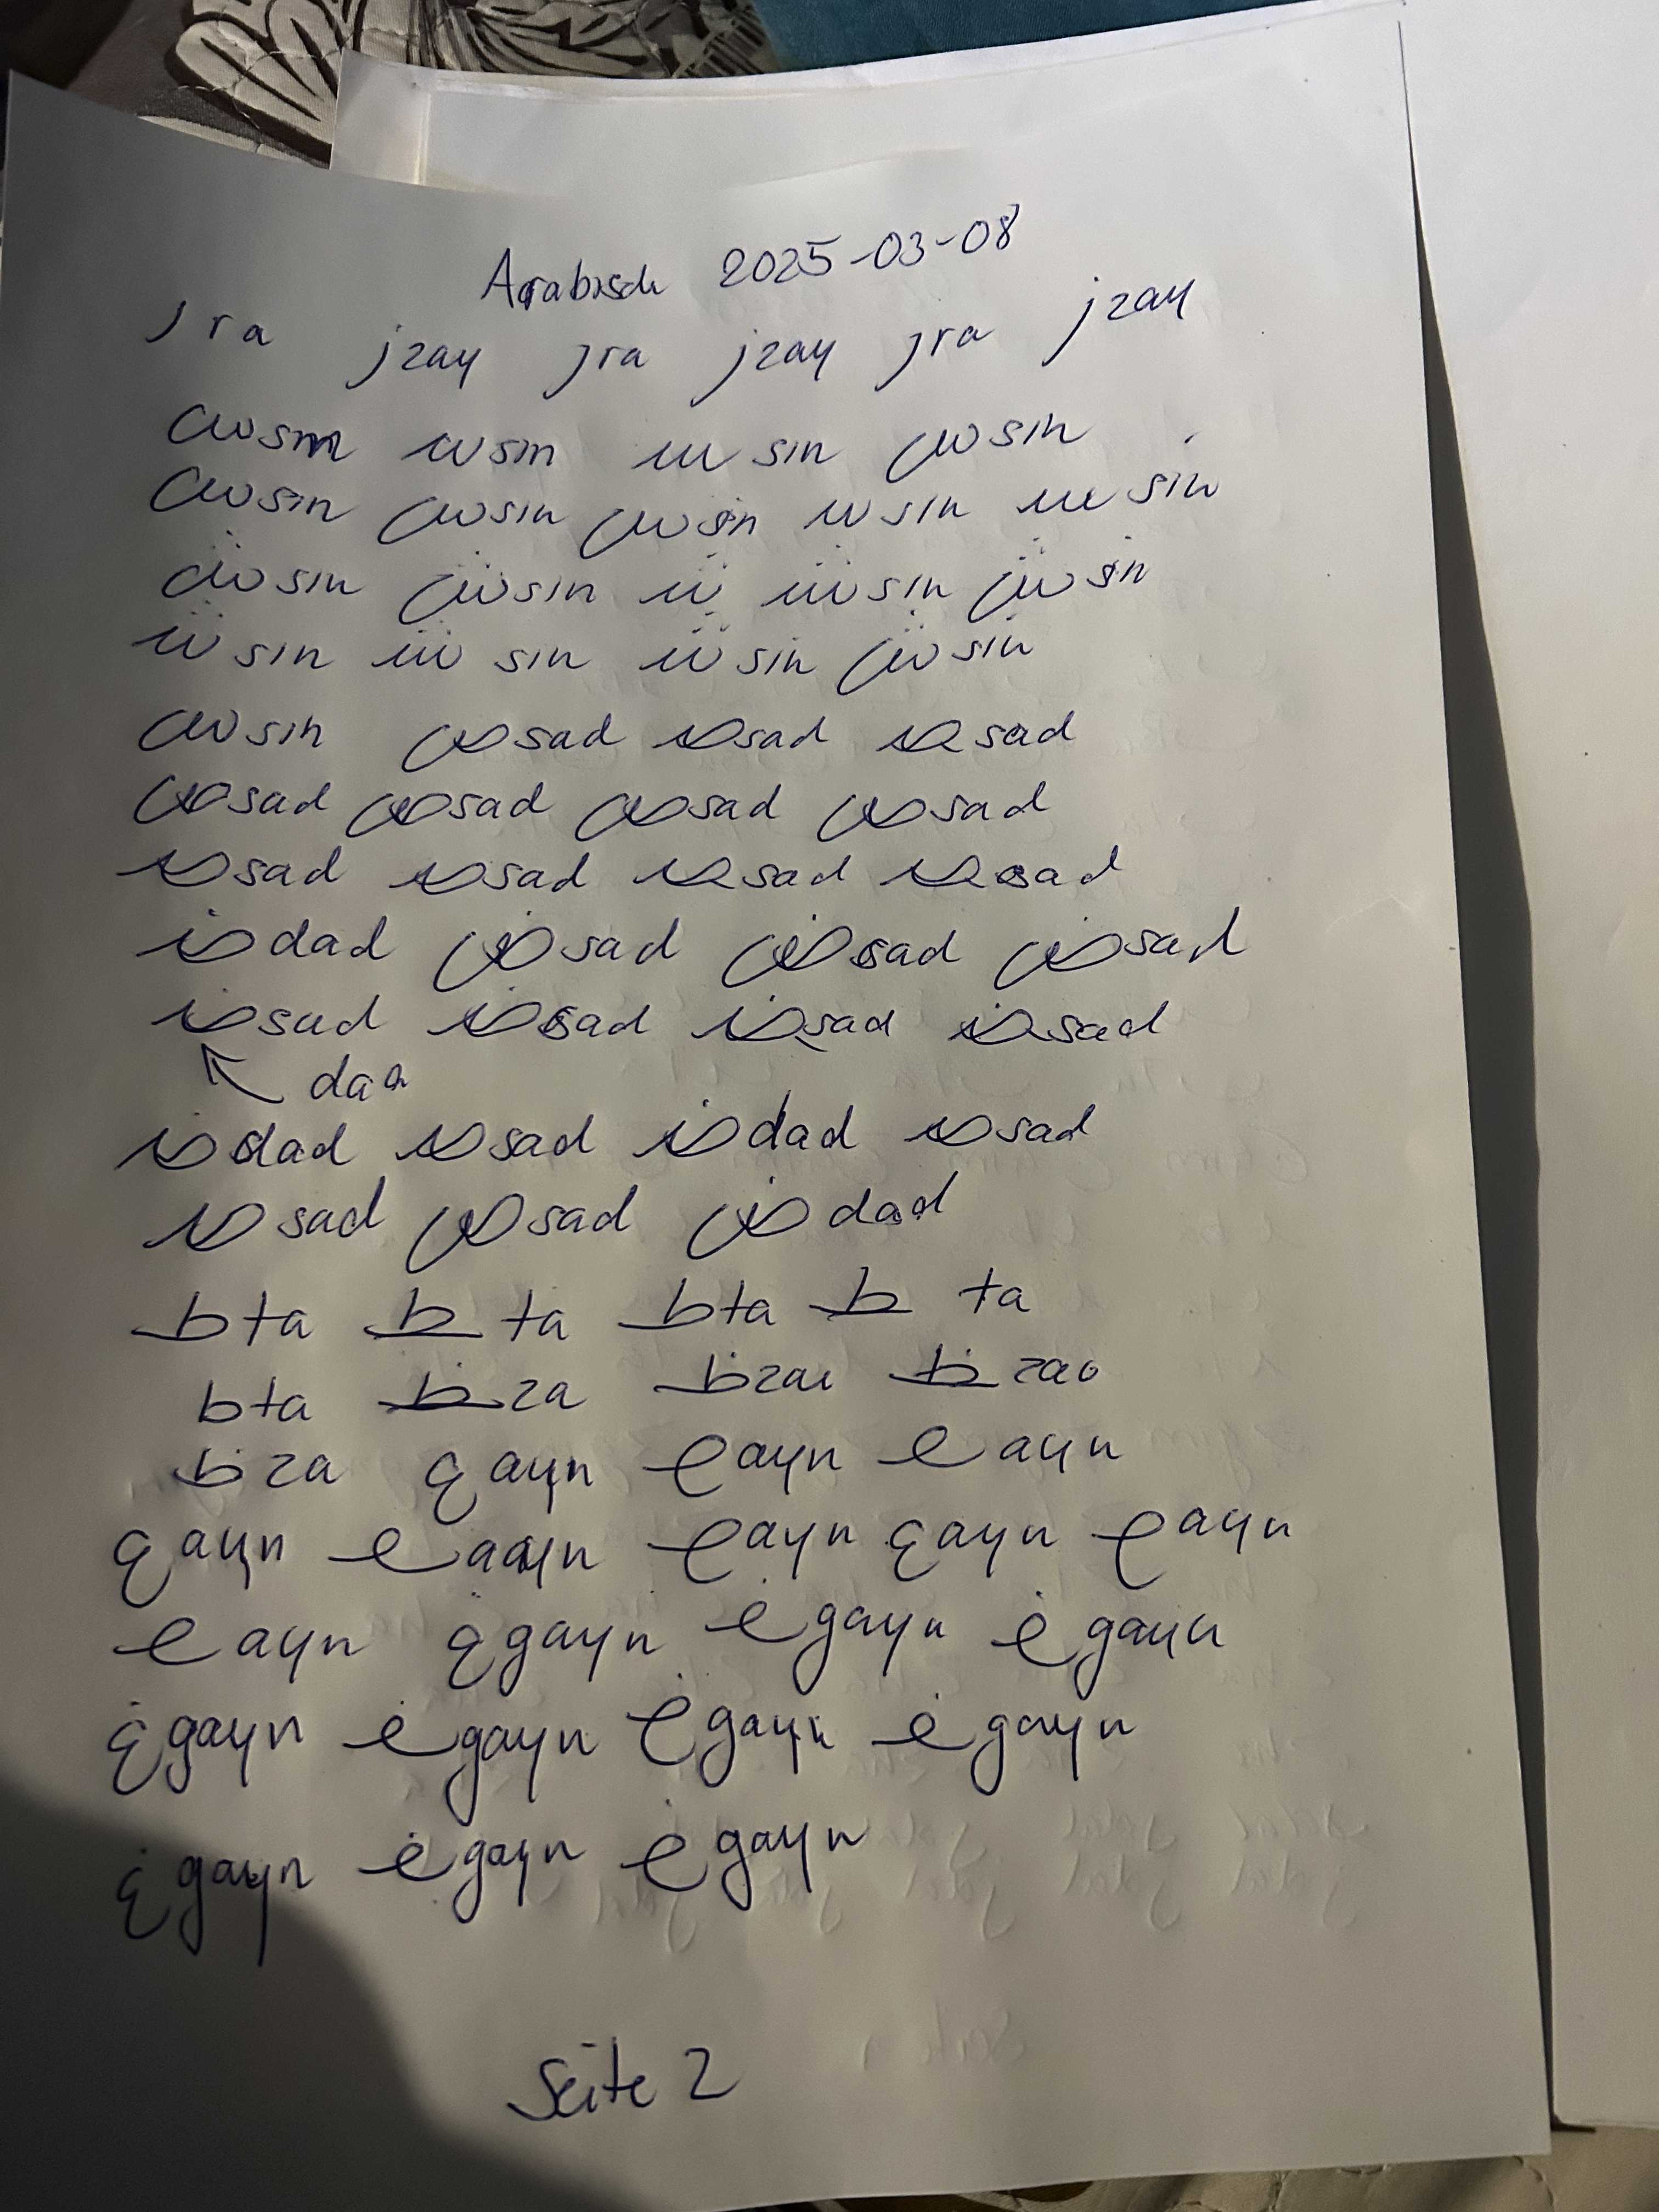 Arabisch 2025-03-08
ر ra ز zay ر ra ز zay ر ra ز zay
س sin سـ sin ـسـ sin س sin
س sin ـس sin ـس sin سـ sin ـسـ sin
ش sin ـش sin شـ ـشـ sin ـش sin
شـ sin ـشـ sin شـ sin ـش sin
س sin ص sad صـ sad ـصـ sad
ص sad ـص sad ص sad ـص sad
صـ sad صـ sad ـصـ sad ـصـ sad
ضـ dad ض sad ض sad ض sad
ضـ sad ضـ sad ـضـ sad ـضـ sad
↖ daa
ضـ dad صـ sad ضـ dad صـ sad
صـ sad ص sad ض dad
ـط ta ـطـ ta ـط ta ـطـ ta
ط ta ـظـ za ـظ za ـظـ za
ـظ za ع ayn ـع ayn عـ ayn
ع ayn ـعـ aayn ـع ayn ع ayn ـع ayn
ـعـ ayn غ gayn ـغـ gayn ـغـ gayn
غ gayn ـغـ gayn ـغ gayn ـغـ gayn
غ gayn ـغـ gayn ـغ gayn
Seite 2